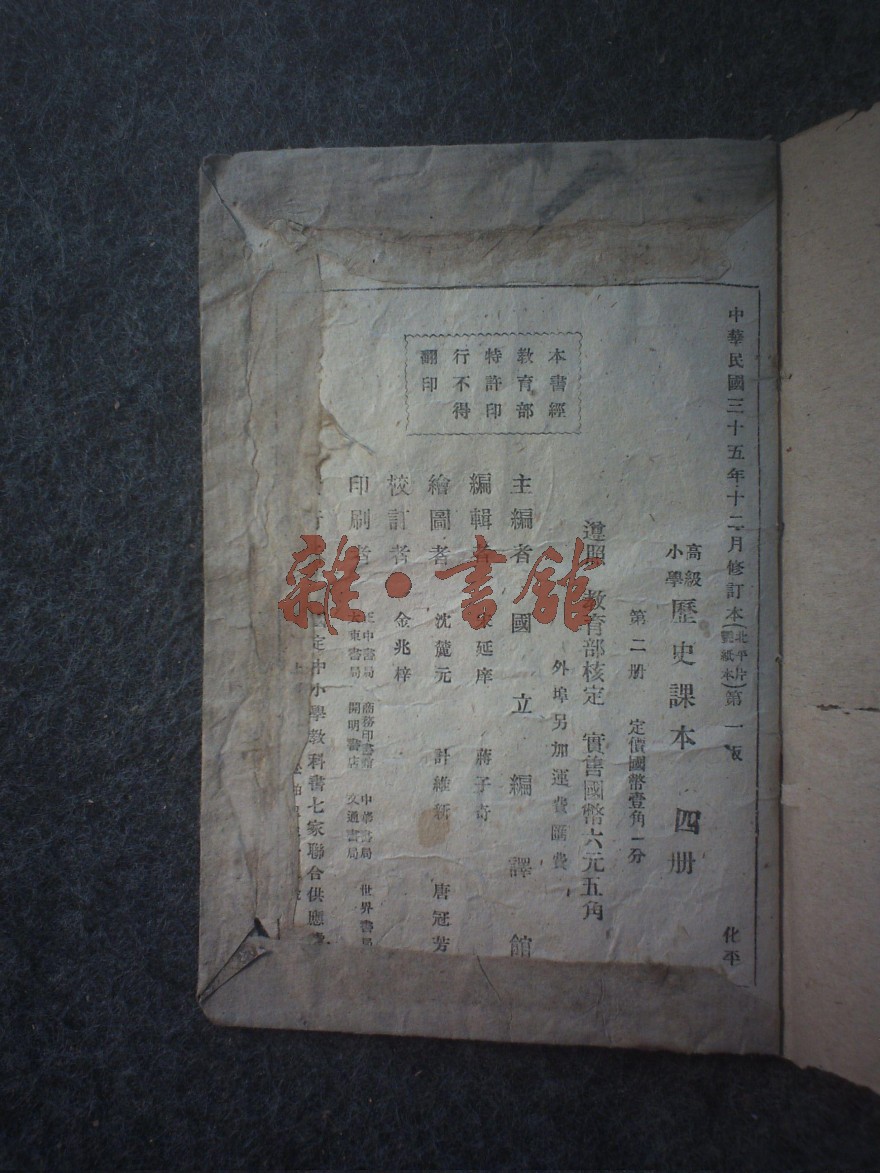 中華民國三十五年十二月修訂本(北平片凱紙本)第一版
化平
高級小學 歷史課本 四册
第二册 定價國幣壹角一分
外埠另加運費匯費
遵照 教育部核定 實售國幣六元五角
本書經
教育部
特許印
行不得
翻印
主編者 國立編譯館
編輯者 延庠 蔣子奇
繪圖者 沈麓元 計維新 唐冠芳
校訂者 金兆梓
印刷者 正中書局 商務印書館 中華書局 世界書局
大東書局 開明書店 文通書局
定中小學教科書七家聯合供應
雜·書館